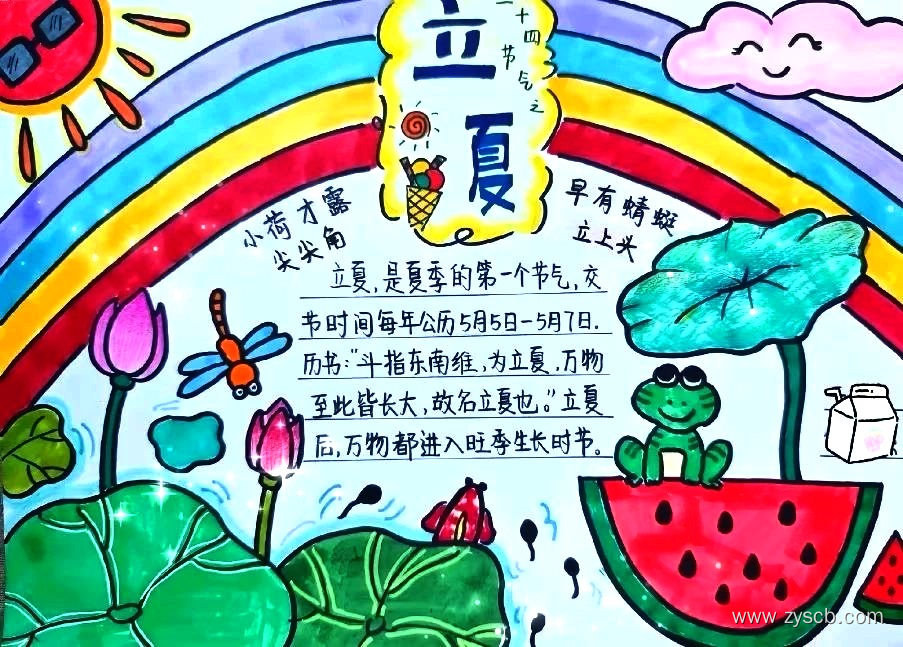 立夏
二十四节气之
小荷才露
尖尖角
早有蜻蜓
立上头
立夏,是夏季的第一个节气,交
节时间每年公历5月5日-5月7日.
历书:"斗指东南维,为立夏.万物
至此皆长大,故名立夏也。"立夏
后,万物都进入旺季生长时节。
www.zyscb.com